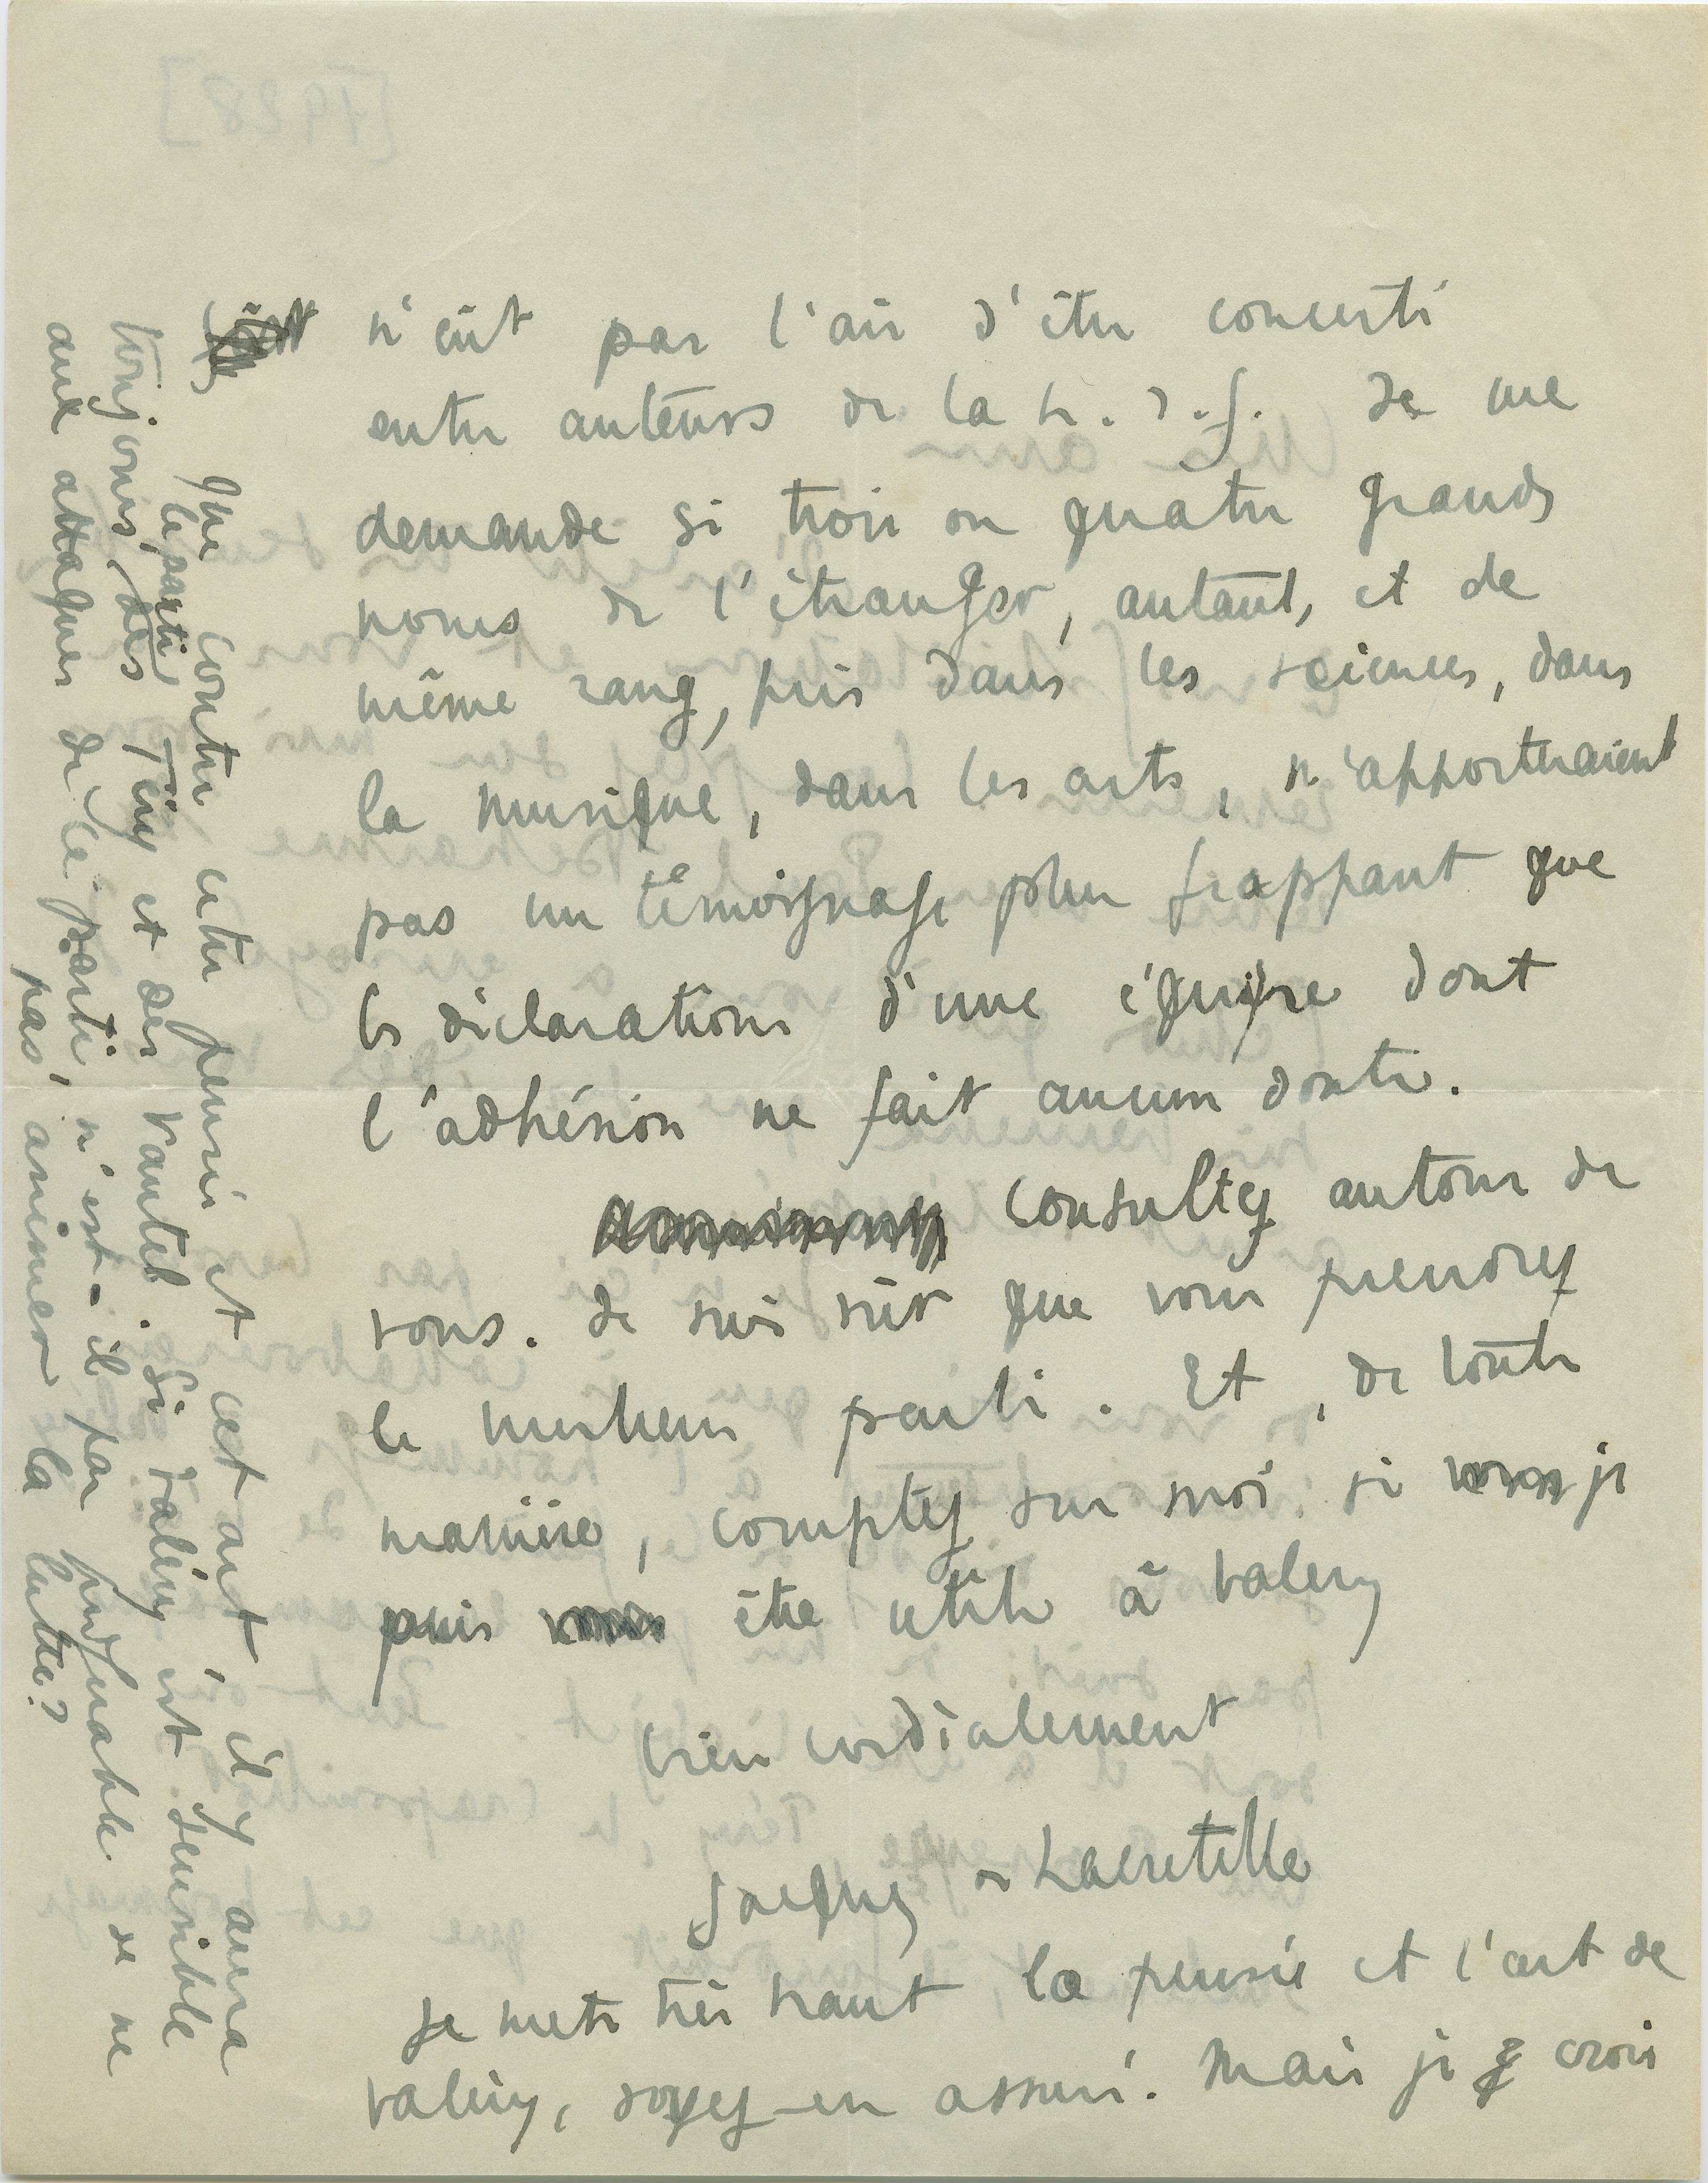 n'eût pas l'air d'être concerté
entre auteurs de la n.r.f. Je me
demande si trois ou quatre grands
noms de l'étranger, autant, et de
même rang, pris dans les sciences, dans
la musique, dans les arts, n'apporteraient
pas un témoignage plus frappant que
les déclarations d'une équipe dont
l'adhésion ne fait aucun doute.
Consultez autour de
vous. Je suis sûr que vous prendrez
le meilleur parti. Et, de toute
manière, comptez sur moi si je
puis être utile à Valéry
bien cordialement
Jacques de Lacretelle
Je mets très haut la pensée et l'art de
Valéry, soyez-en assuré. Mais je crois
que contre cette pensée et cet art, il y aura
toujours, des Téry et des Vautel. Si Valéry est sensible
aux attaques de ce parti, n'est-il pas préférable de ne
pas animer la lutte?
le parti
[1928]